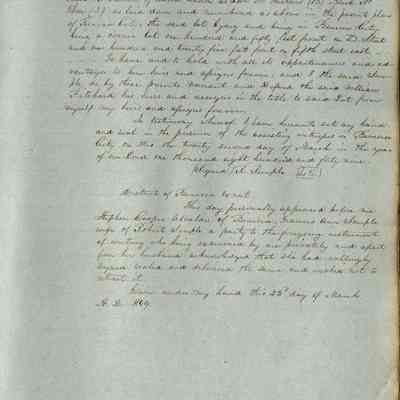 as laid down and numbered as above in the plan
of Benicia City, the said lot lying and being in Benicia City
being a corner lot one hundred and fifty feet front on D street
and one hundred and twenty five feet front on fifth street east
To have and to hold with all its appurtenances and ad
vantages to him heirs and assigns forever, and I the said
do by these presents warrant and defend the said William
his heirs and assigns in the title to said Lot from
myself my heirs and assigns forever
In testimony whereof I have hereunto set my hand
and seal in the presence of the assisting witnesses in Benicia
City on this the twenty second day of March in the year
of our Lord one thousand eight hundred and forty nine.
Signed R. Semple L.S.
District of Benicia to wit.
This day personally appeared before me
Stephen Cooper Alcalde of Benicia, Frances Ann Semple
wife of Robert Semple a party to the foregoing instrument
of writing who being examined by me privately and apart
from her husband acknowledged that she had willingly
signed sealed and delivered the same and wished not to
retract it.
Given under my hand this 22d day of March
A. D. 1849.